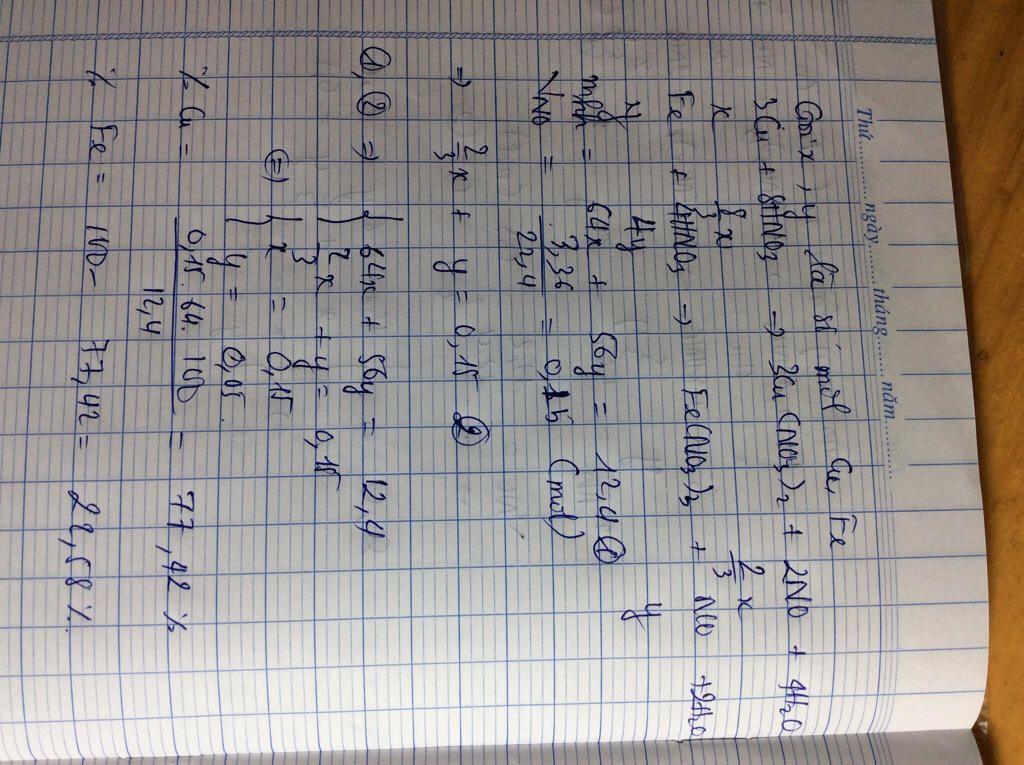 Thứ............ngày............tháng............năm............
Gọi x, y là số mol Cu, Fe
3Cu + 8HNO3 → 3Cu(NO3)2 + 2NO + 4H2O
x 8/3 x 2/3 x
Fe + 4HNO3 → Fe(NO3)3 + NO + 2H2O
y 4y y
mhh = 64x + 56y = 12,4 ①
VNO = 3,36/22,4 = 0,15 (mol)
⇒ 2/3 x + y = 0,15 ②
①, ② ⇒ { 64x + 56y = 12,4
2/3 x + y = 0,15
⇔ { x = 0,15
y = 0,05.
% Cu = 0,15.64.100/12,4 = 77,42 %
% Fe = 100 - 77,42 = 22,58 %.